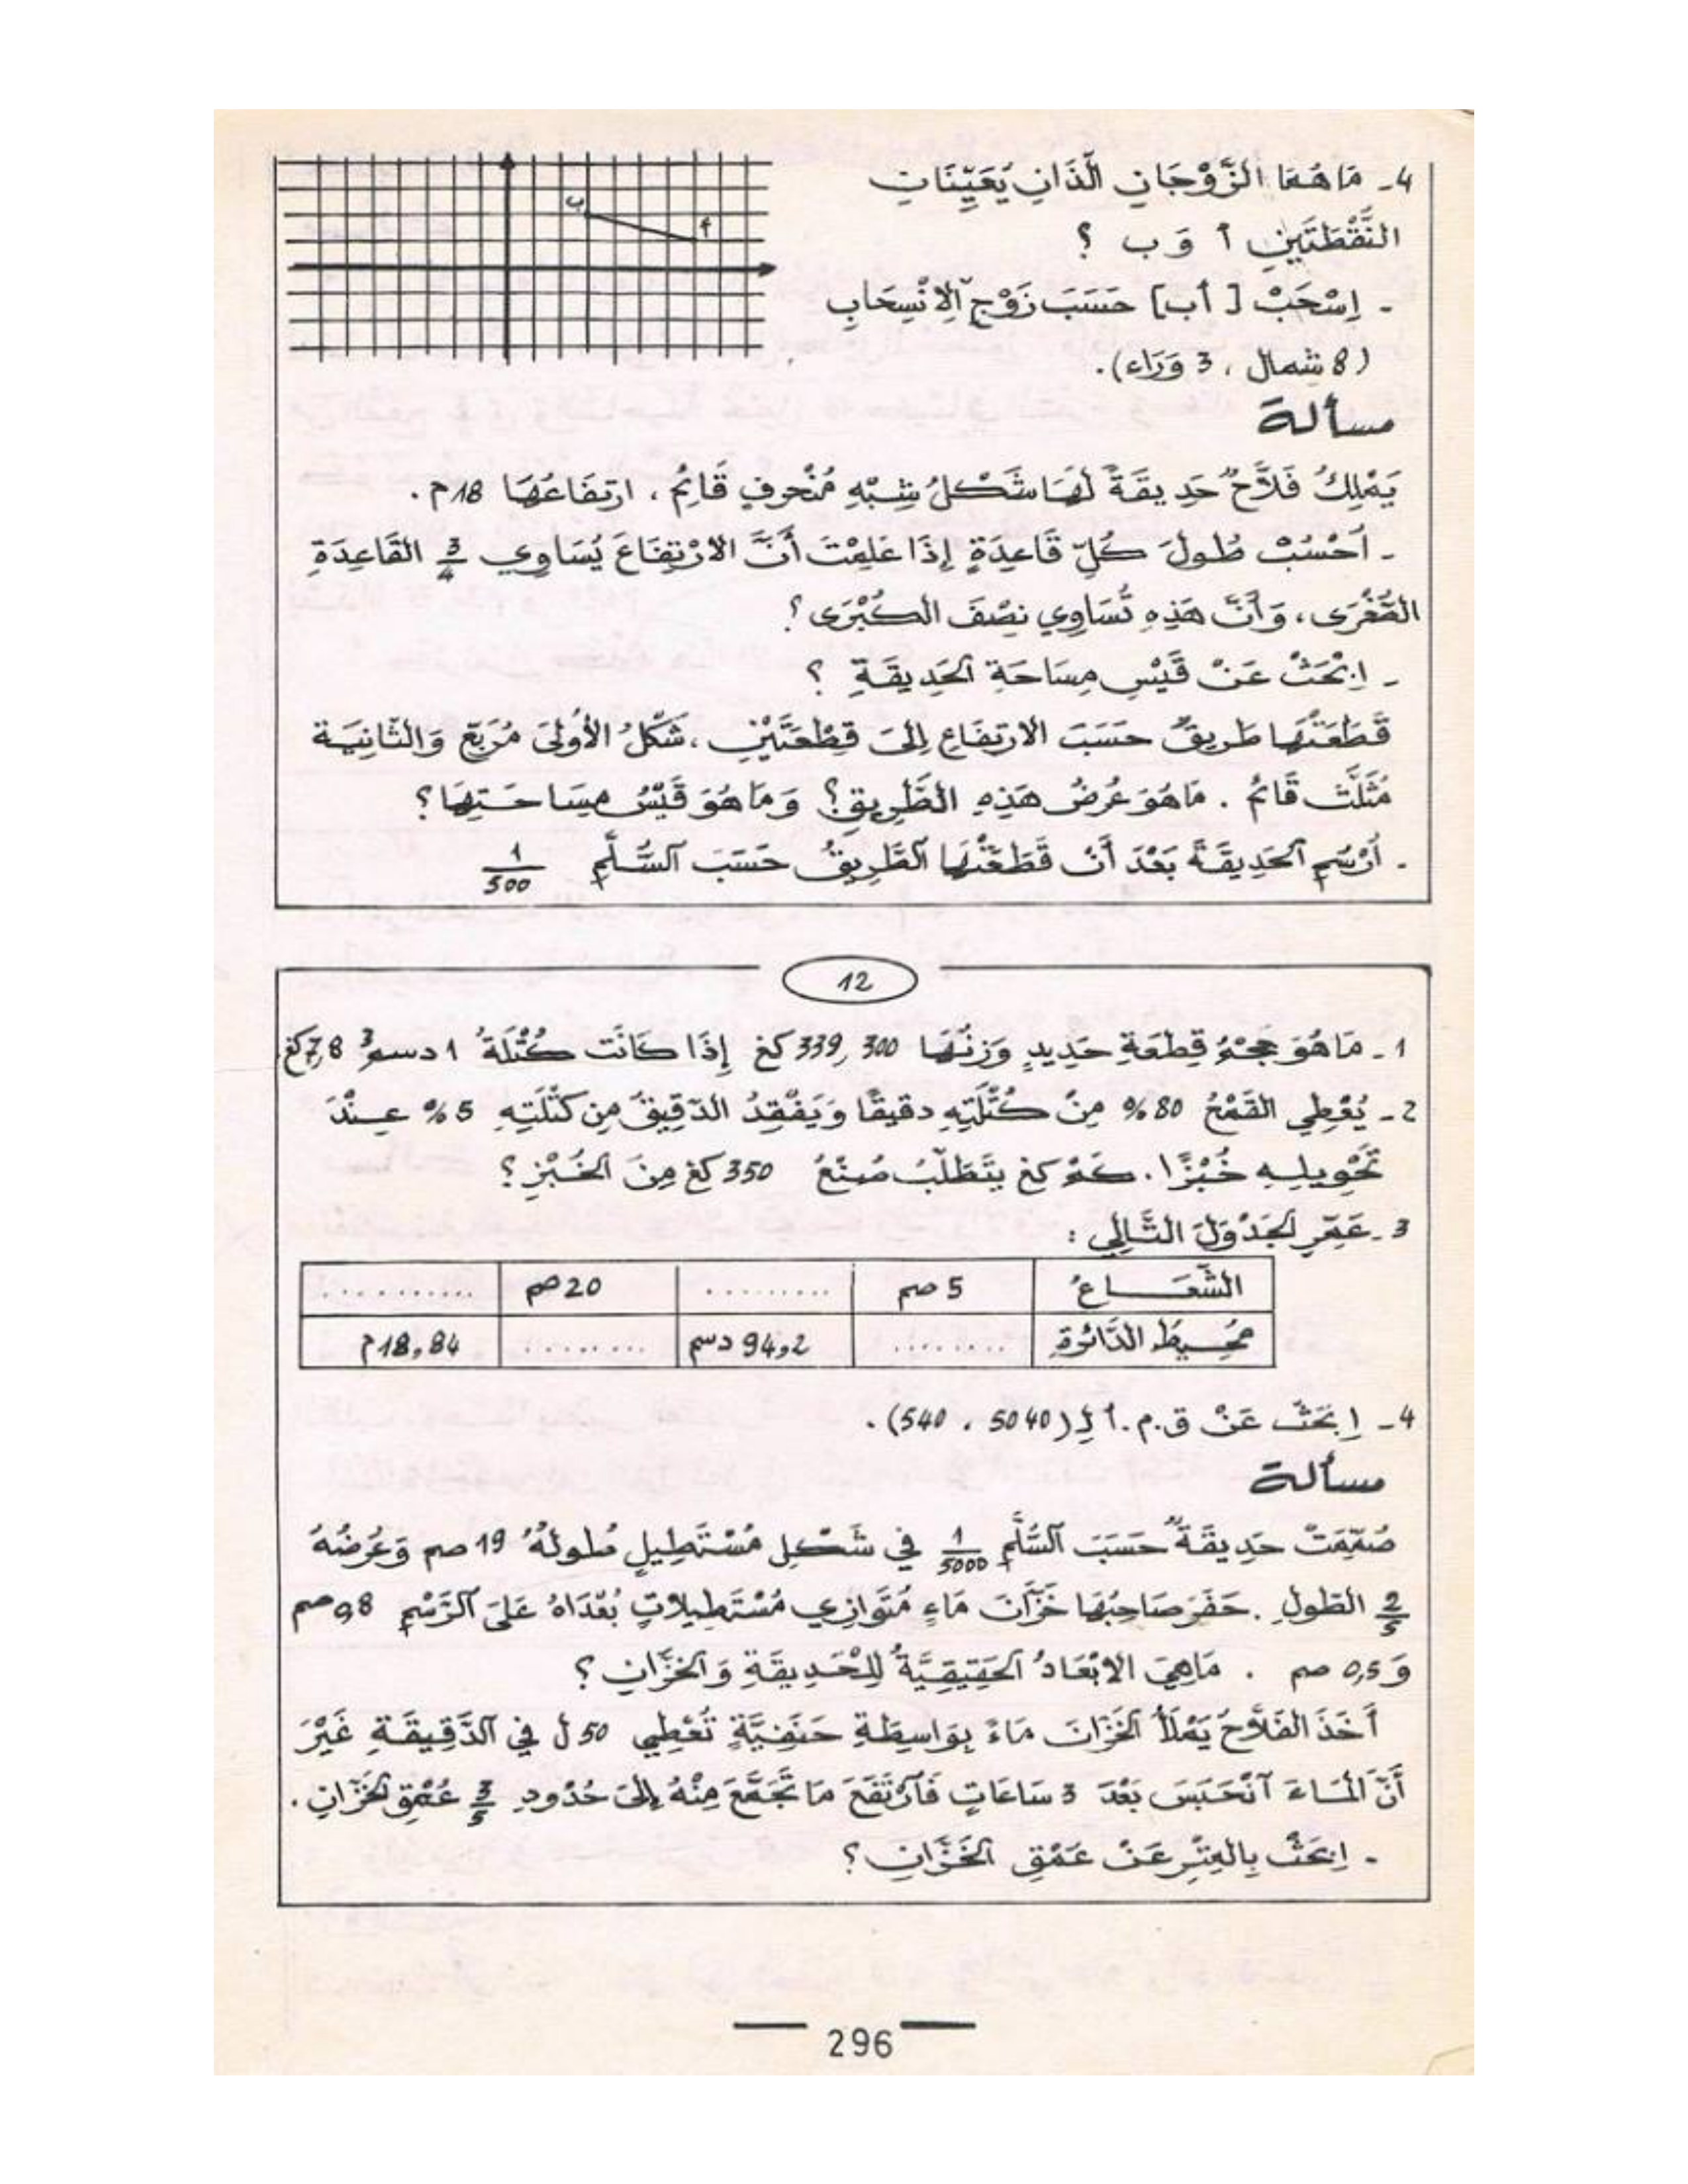 4 - مَا هُمَا الزَّوْجَانِ الَّذَانِ يُعَيِّنَانِ
النُّقْطَتَيْنِ أ وَ ب ؟
ب
أ
- اِسْحَبْ [ أب] حَسَبَ زَوْجِ الِانْسِحَابِ
(8 شمال ، 3 وَرَاء).
مسألة
يَمْلِكُ فَلَّاحٌ حَدِيقَةً لَهَا شَكْلُ شِبْهِ مُنْحَرِفٍ قَائِمٍ ، ارتِفَاعُهَا 18م .
- اُحْسُبْ طُولَ كُلِّ قَاعِدَةٍ إِذَا عَلِمْتَ أَنَّ الارْتِفَاعَ يُسَاوِي 3/4 القَاعِدَةِ
الصُّغْرَى ، وَأَنَّ هَذِهِ تُسَاوِي نِصْفَ الكُبْرَى ؟
- اِبْحَثْ عَنْ قَيْسِ مِسَاحَةِ الحَدِيقَةِ ؟
قَطَعَتْهَا طَرِيقٌ حَسَبَ الارتِفَاعِ إِلَى قِطْعَتَيْنِ ، شَكْلُ الأُولَى مُرَبَّع وَالثَّانِيَة
مُثَلَّث قَائِم . مَا هُوَ عُرْضُ هَذِهِ الطَّرِيقِ؟ وَ مَا هُوَ قَيْسُ مِسَاحَتِهَا ؟
- اُرْسُمِ الحَدِيقَةَ بَعْدَ أَنْ قَطَعَتْهَا الطَّرِيقُ حَسَبَ السُّلَّمِ 1/500
12
1 - مَا هُوَ حَجْمُ قِطْعَةِ حَدِيدٍ وَزْنُهَا 339,300 كغ إِذَا كَانَت كُتْلَةُ 1 دسم³ 7,8 كغ
2 - يُعْطِي القَمْحُ 80 % مِنْ كُتْلَتِهِ دقِيقًا وَ يَفْقِدُ الدَّقِيقُ مِن كُتْلَتِهِ 5 % عِـنْدَ
تَحْوِيلِهِ خُبْزًا . كَمْ كغ يَتَطَلَّبُ صُنْعُ 350 كغ مِنَ الخُبْزِ ؟
3 - عَمِّرِ الجَدْوَلَ التَّالِي :
الشُّعَـــاعُ 5 صم ......... 20 صم ...........
مُحِـيطُ الدَّائِرَةِ ........ 94,2 دسم ........ 18,84 م
4 - اِبْحَثْ عَنْ ق.م.أ لِـ (5040 ، 540) .
مسألة
صُمِّمَتْ حَدِيقَةٌ حَسَبَ السُّلَّمِ 1/5000 فِي شَكْلِ مُسْتَطِيلٍ طُولُهُ 19 صم وَعُرْضُهُ
2/5 الطُولِ . حَفَرَ صَاحِبُهَا خَزَّانَ مَاءٍ مُتَوَازِي مُسْتَطِيلَاتٍ بُعْدَاهُ عَلَى الرَّسْمِ 0,8 صم
وَ 0,5 صم . مَا هِيَ الابْعَادُ الحَقِيقِيَّةُ لِلْحَدِيقَةِ وَ الخَزَّانِ ؟
أَخَذَ الفَلَّاحُ يَمْلَأُ الخَزَّانَ مَاءً بِوَاسِطَةِ حَنَفِيَّةٍ تُعْطِي 50 ل فِي الدَّقِيقَةِ غَيْرَ
أَنَّ الْمَاءَ انْحَبَسَ بَعْدَ 3 سَاعَاتٍ فَارْتَفَعَ مَا تَجَمَّعَ مِنْهُ إِلَى حُدُودِ 3/5 عُمْقِ الخَزَّانِ .
- اِبْحَثْ بِالمِتْرِ عَنْ عُمْقِ الخَزَّانِ ؟
296